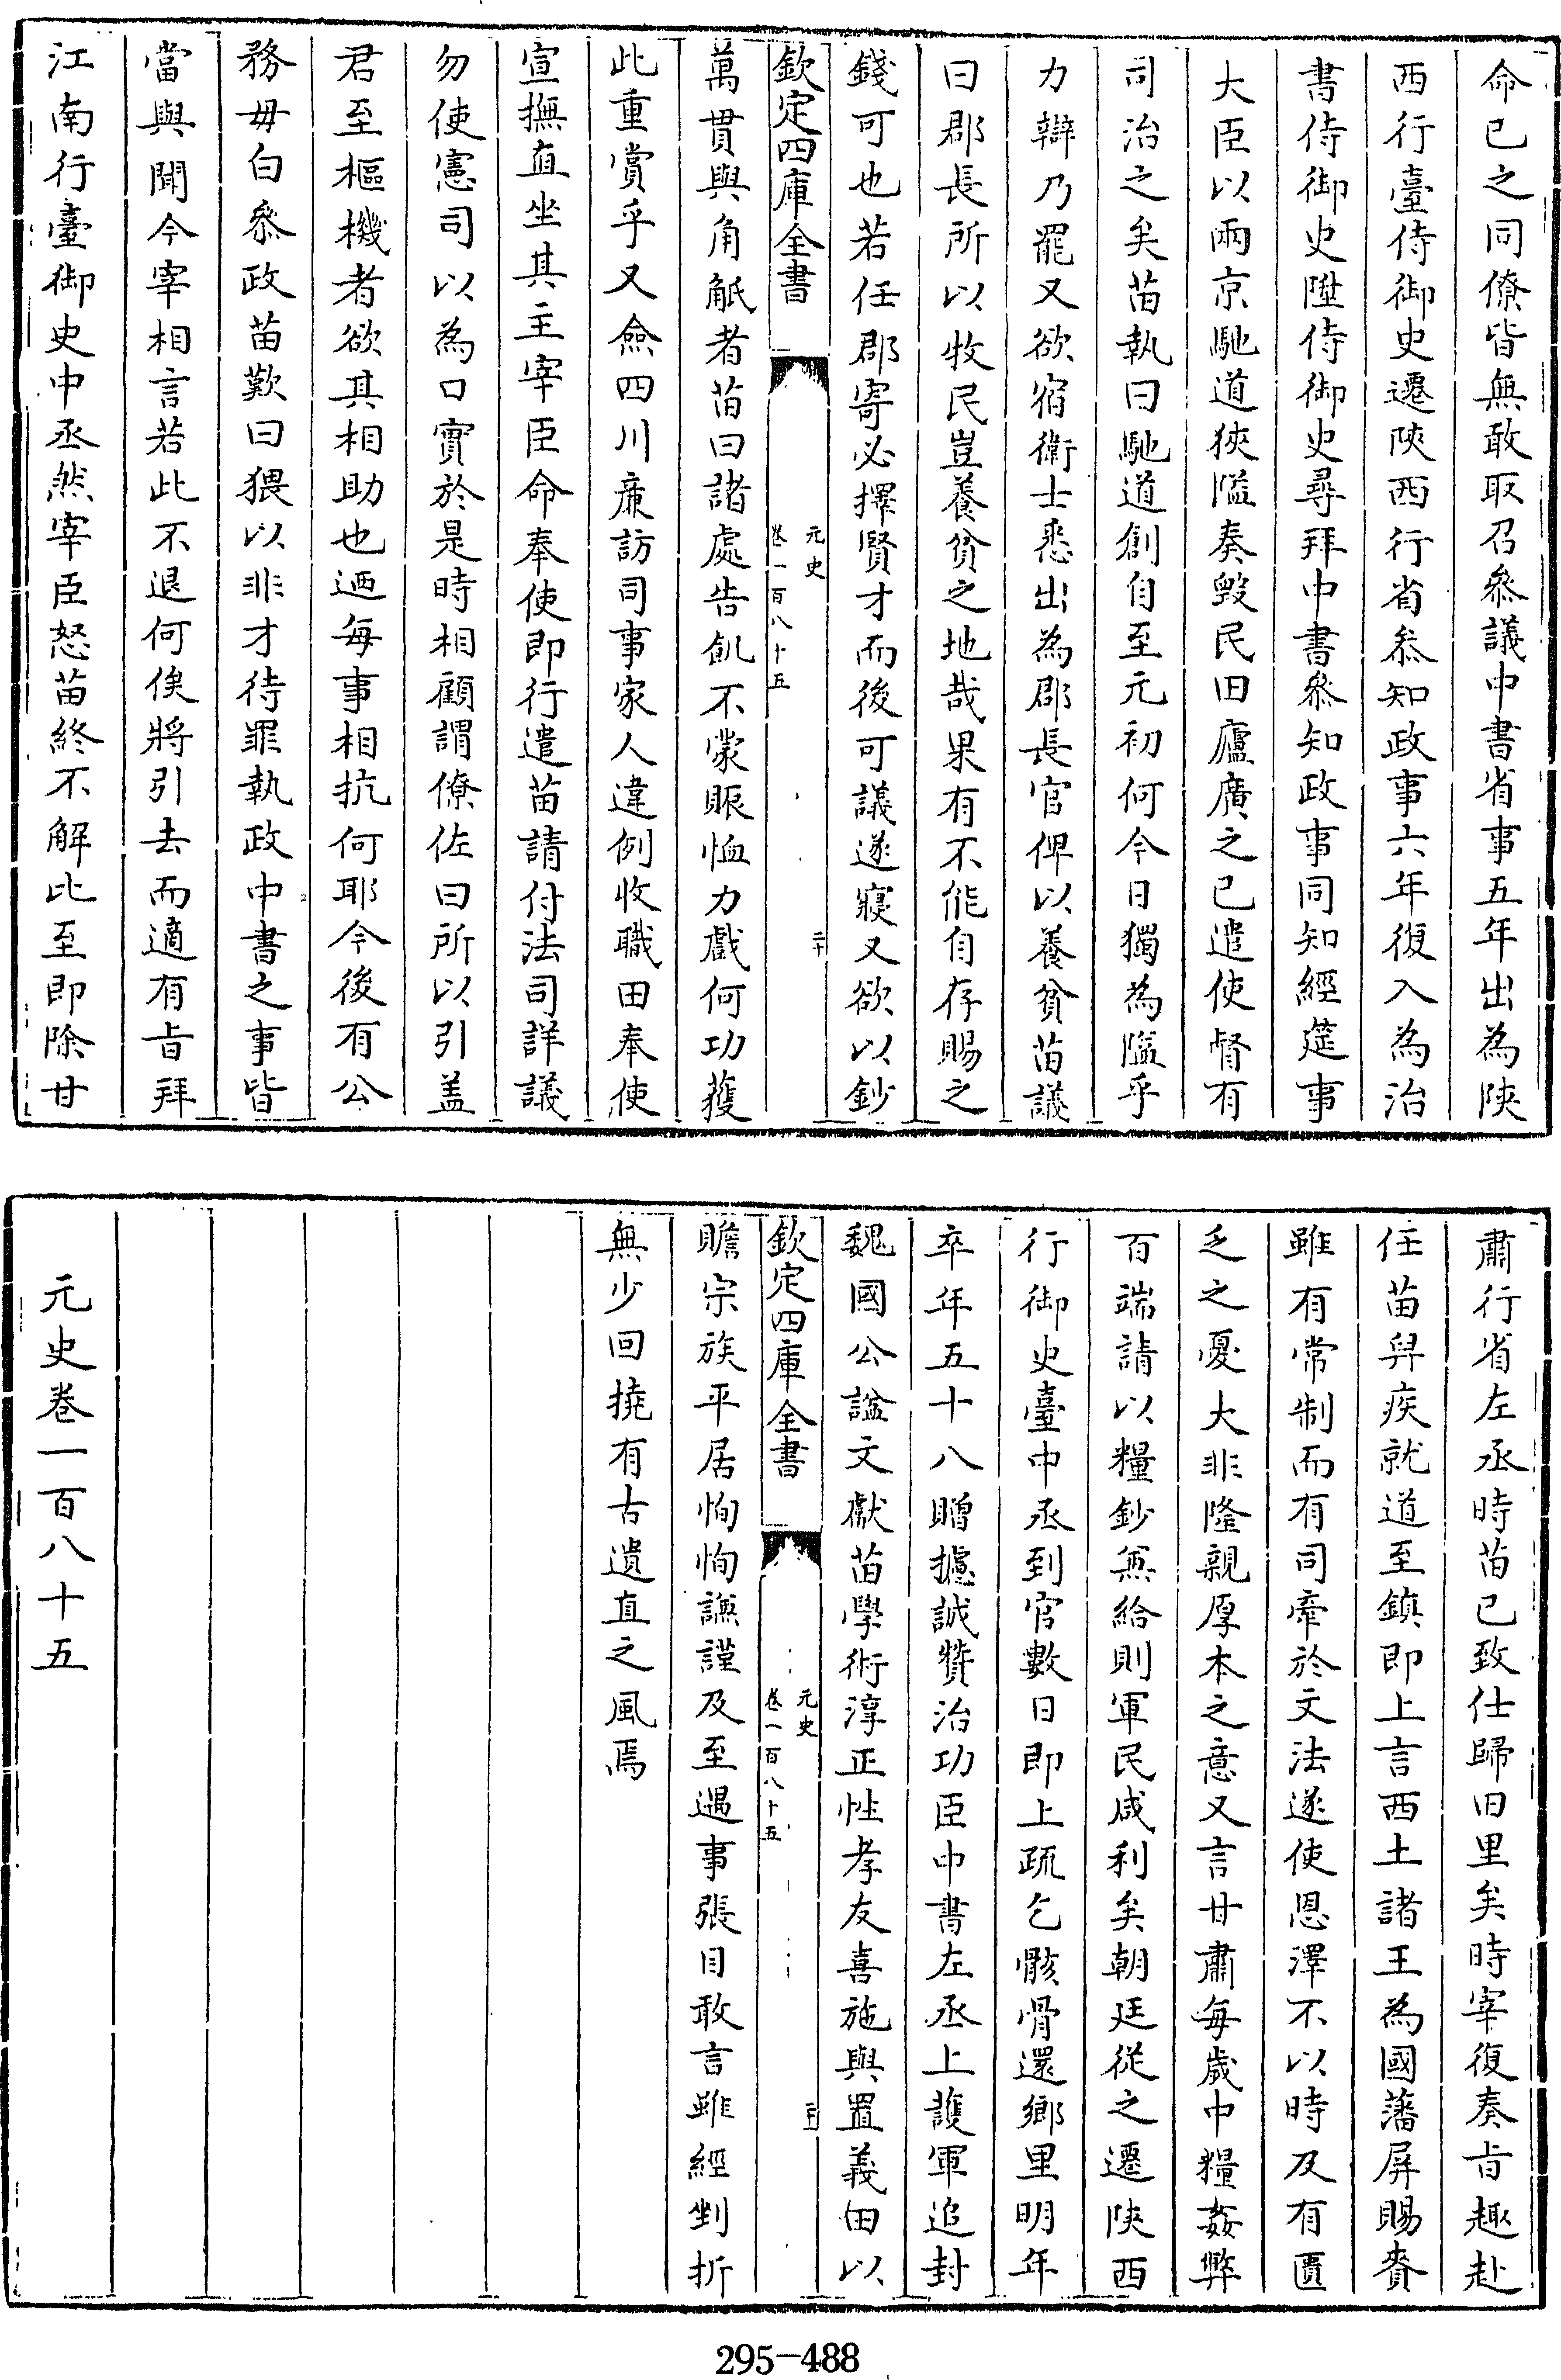 命已之同僚皆無敢取召叅議中書省事五年出為陜
西行臺侍御史遷陜西行省叅知政事六年復入為治
書侍御史陞侍御史尋拜中書叅知政事同知經筵事
大臣以兩京馳道狹隘奏毀民田廬廣之已遣使督有
司治之矣苗執曰馳道創自至元初何今日獨為隘乎
力辯乃罷又欲宿衛士悉出為郡長官俾以養貧苗議
曰郡長所以牧民豈養貧之地哉果有不能自存賜之
錢可也若任郡寄必擇賢才而後可議遂寢又欲以鈔
欽定四庫全書
元史
卷一百八十五
二十
萬貫與角觝者苗曰諸處告飢不蒙賑恤力戲何功獲
此重賞乎又僉四川亷訪司事家人違例收職田奉使
宣撫直坐其主宰臣命奉使即行遣苗請付法司詳議
勿使憲司以為口實於是時相顧謂僚佐曰所以引盖
君至樞機者欲其相助也迺每事相抗何耶今後有公
務毋白叅政苗歎曰猥以非才待罪執政中書之事皆
當與聞今宰相言若此不退何俟將引去而適有㫖拜
江南行臺御史中丞然宰臣怒苗終不解比至即除甘
肅行省左丞時苗已致仕歸田里矣時宰復奏㫖趣赴
任苗舁疾就道至鎮即上言西土諸王為國藩屏賜賚
雖有常制而有司牽於文法遂使恩澤不以時及有匱
乏之憂大非隆親厚本之意又言甘肅每歲中糧姦弊
百端請以糧鈔兼給則軍民咸利矣朝廷從之遷陜西
行御史臺中丞到官數日即上疏乞骸骨還鄉里明年
卒年五十八贈攄誠贊治功臣中書左丞上護軍追封
魏國公諡文獻苗學術淳正性孝友喜施與置義田以
欽定四庫全書
元史
卷一百八十五
二十一
贍宗族平居恂恂謙謹及至遇事張目敢言雖經剉折
無少回撓有古遺直之風焉
元史卷一百八十五
295-488